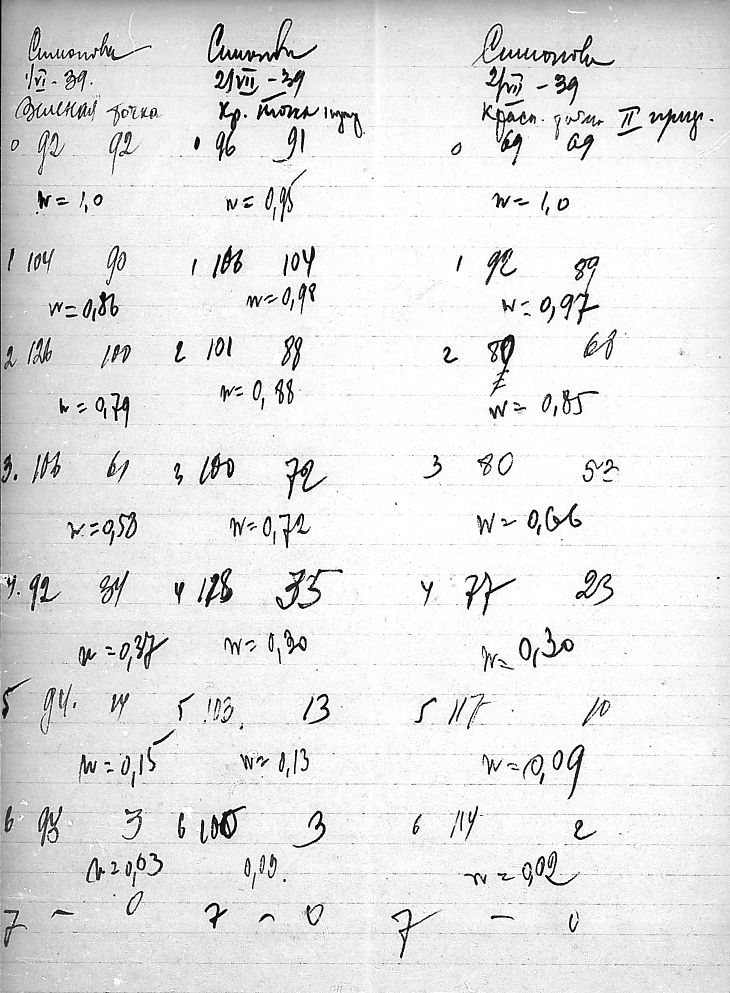 Симонова
1/VI - 39.
Зеленая точка
0 92 92
n = 1,0
1 104 90
n = 0,86
2 126 100
n = 0,79
3. 106 61
n = 0,58
4. 92 34
n = 0,37
5 94. 14
n = 0,15
6 93 3
n = 0,03
7 – 0
Симонова
21/VII - 39
Кр. точка 1
0 96 91
n = 0,95
1 106 104
n = 0,98
2 101 88
n = 0,88
3 100 72
n = 0,72
4 35
n = 0,30
5 103. 13
n = 0,13
6 100 3
0,03.
7 – 0
Симонова
21/VII - 39
Красн. точка II
0 69 69
n = 1,0
1 92 89
n = 0,97
2 80 68
n = 0,85
3 80 53
n = 0,66
4 77 23
n = 0,30
5 117 10
n = 0,09
6 114 2
n = 0,02
7 – 0